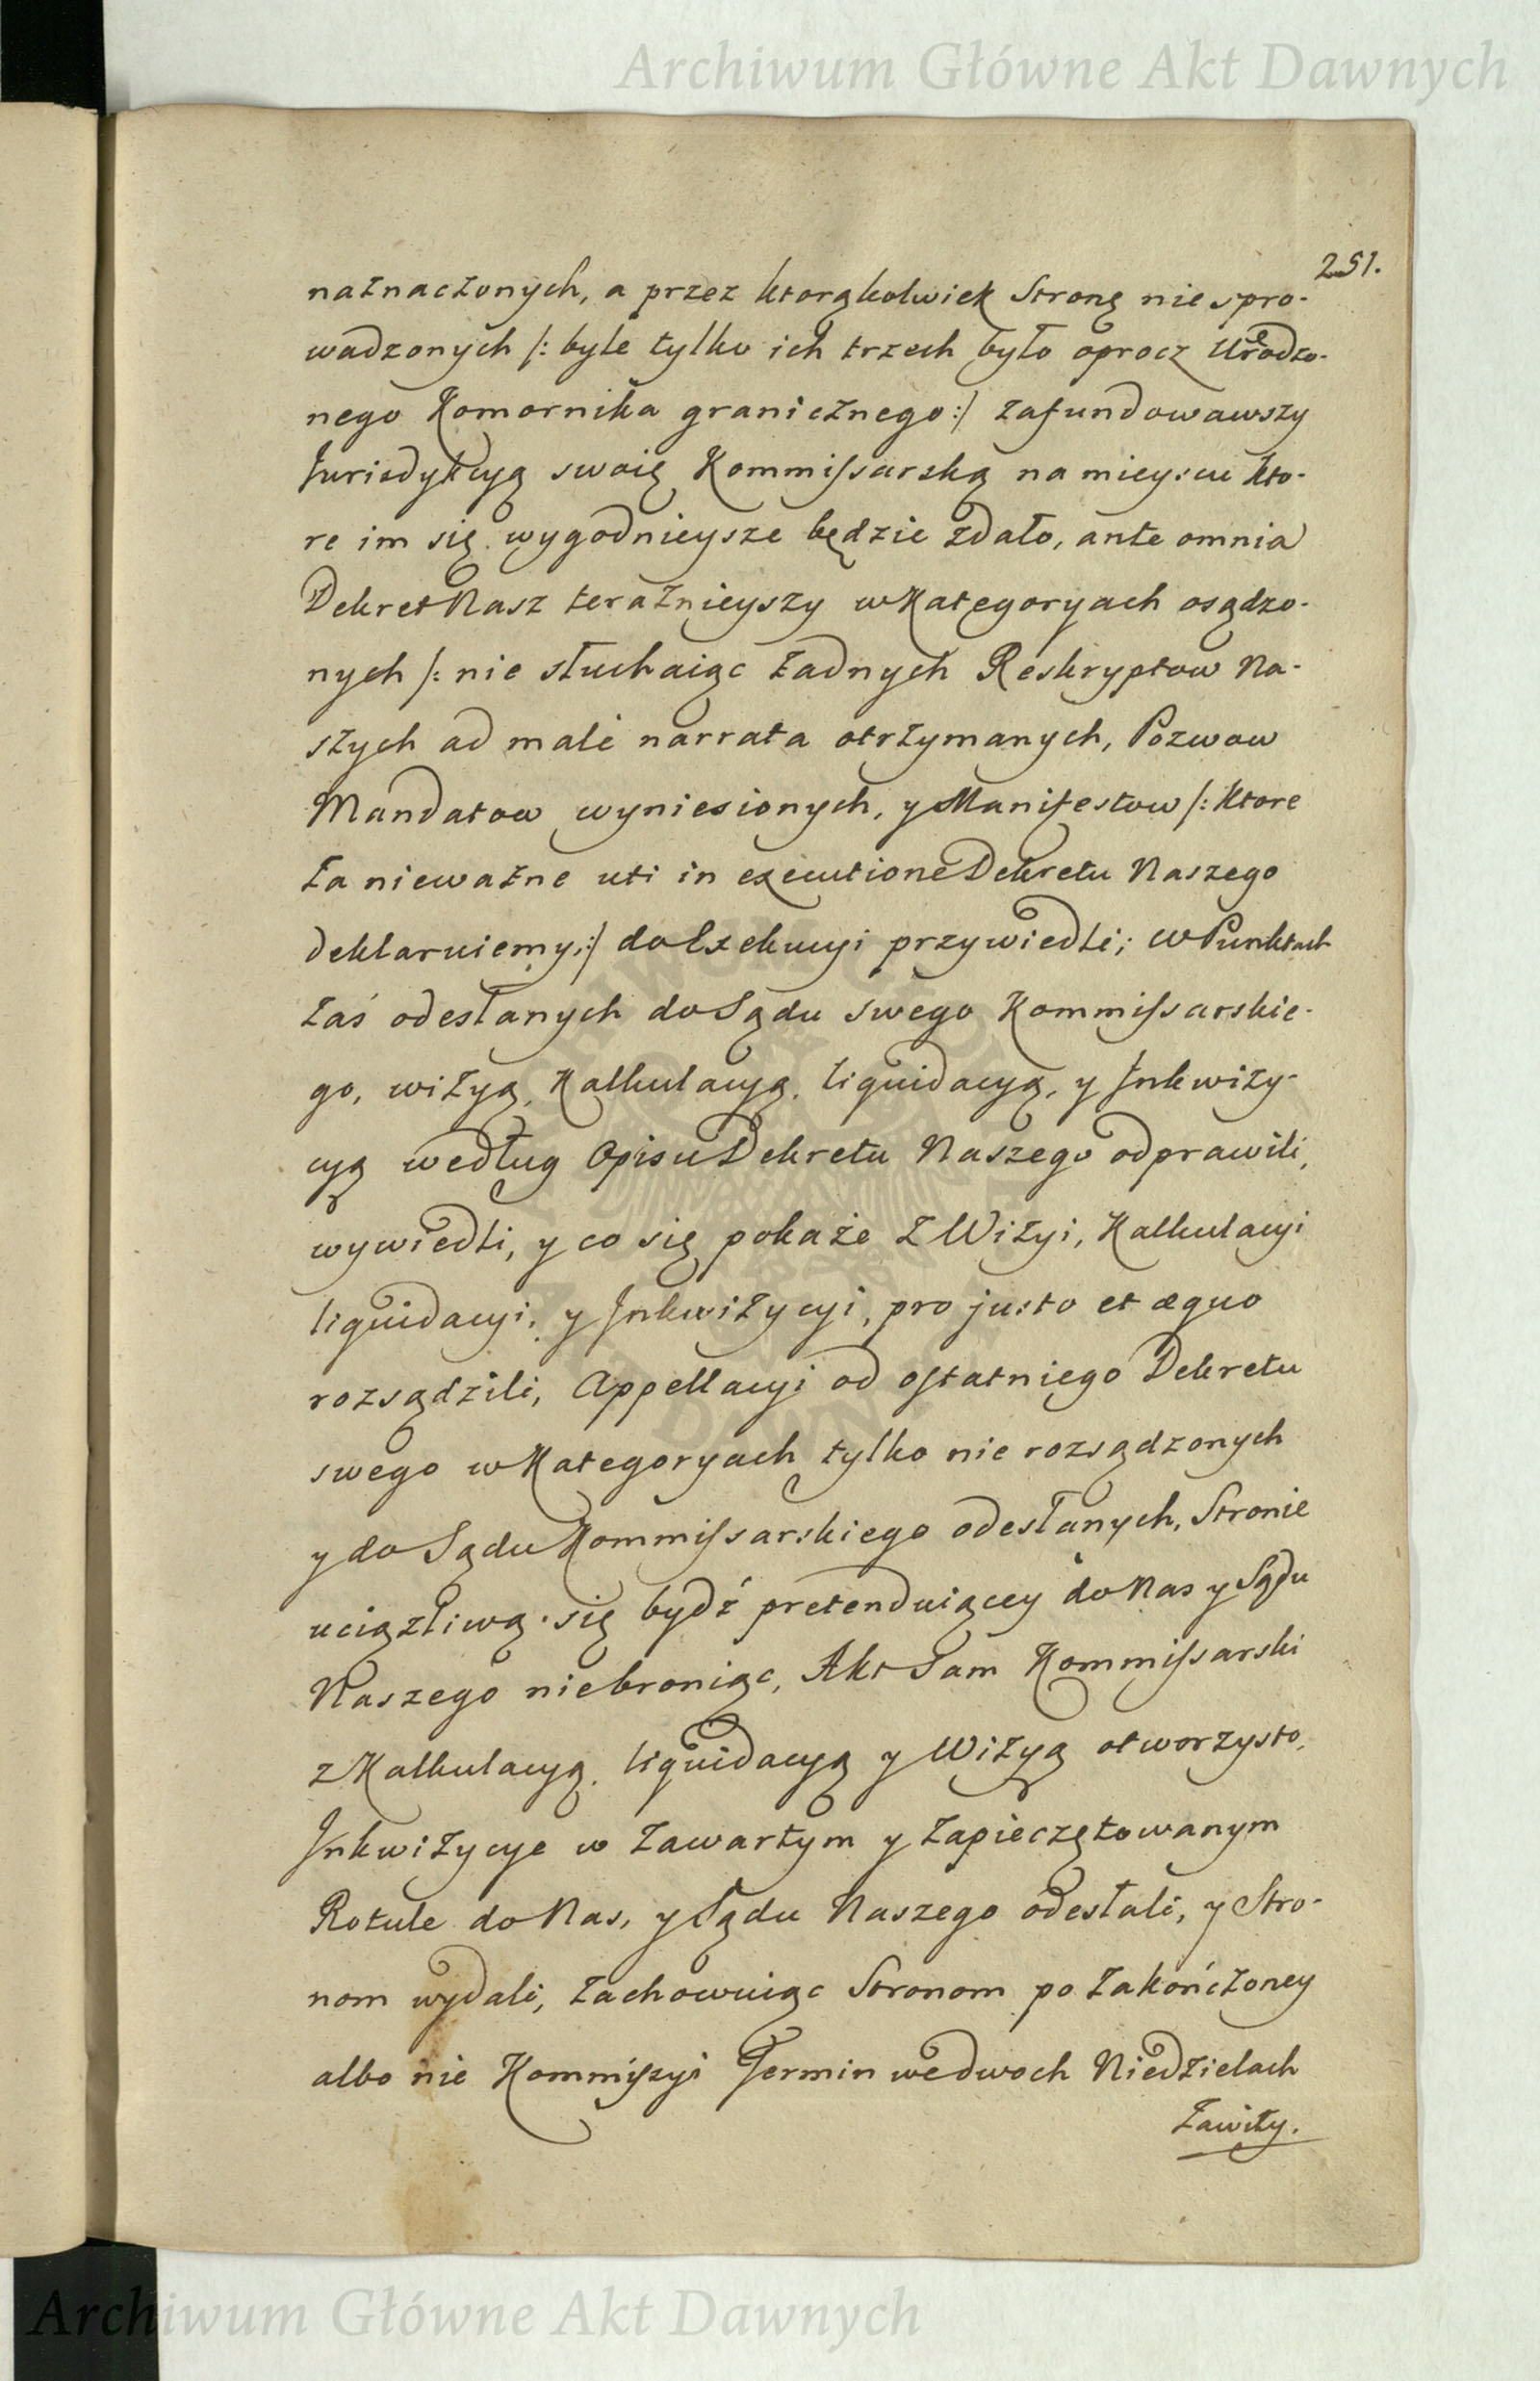 Archiwum Główne Akt Dawnych
251.
naznaczonych, a przez ktorąkolwiek Stronę nie spro-
wadzonych /: byle tylko ich trzech było oprocz Urodzo-
nego Komornika granicznego :/ zafundowawszy
Jurisdykcyą swoię Kommissarską na mieyscu kto-
re im się wygodnieysze będzie zdało, ante omnia
Dekret Nasz teraznieyszy w Kategoryach osądzo-
nych /: nie słuchaiąc żadnych Reskryptow Na-
szych ad male narrata otrzymanych, Pozwow
Mandatow wyniesionych, y Manifestow /: ktore
za nieważne uti in executione Dekretu Naszego
deklaruiemy :/ do Exekucyi przywiedli; w Punktach
zaś odesłanych do Sądu swego Kommissarskie-
go, wizyą, Kalkulacyą, liquidacyą, y Inkwizy-
cyą według Opisu Dekretu Naszego odprawili,
wywiedli, y co się pokaże z Wizyi, Kalkulacyi
liquidacyi, y Inkwizycyi, pro justo et æquo
rozsądzili, Appellacyi od ostatniego Dekretu
swego w Kategoryach tylko nie rozsądzonych
y do Sądu Kommissarskiego odesłanych, Stronie
uciążliwą się bydź pretenduiącey do Nas y Sądu
Naszego niebroniąc, Akt Sam Kommissarski
z Kalkulacyą, liquidacyą y Wizyą otworzysto,
Inkwizycye w zawartym y zapieczętowanym
Rotule do Nas, y Sądu Naszego odesłali, y Stro-
nom wydali, zachowuiąc Stronom po zakończoney
albo nie Kommiszyi Termin we dwoch Niedzielach
zawity.
Archiwum Główne Akt Dawnych